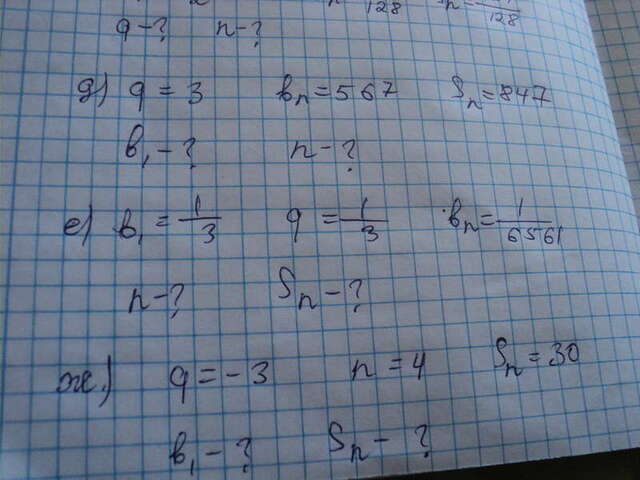 128 128
q - ? n - ?
д) q = 3 bₙ = 567 Sₙ = 847
b₁ - ? n - ?
е) b₁ = 1/3 q = 1/3 bₙ = 1/6561
n - ? Sₙ - ?
ж) q = -3 n = 4 Sₙ = 30
b₁ - ? Sₙ - ?